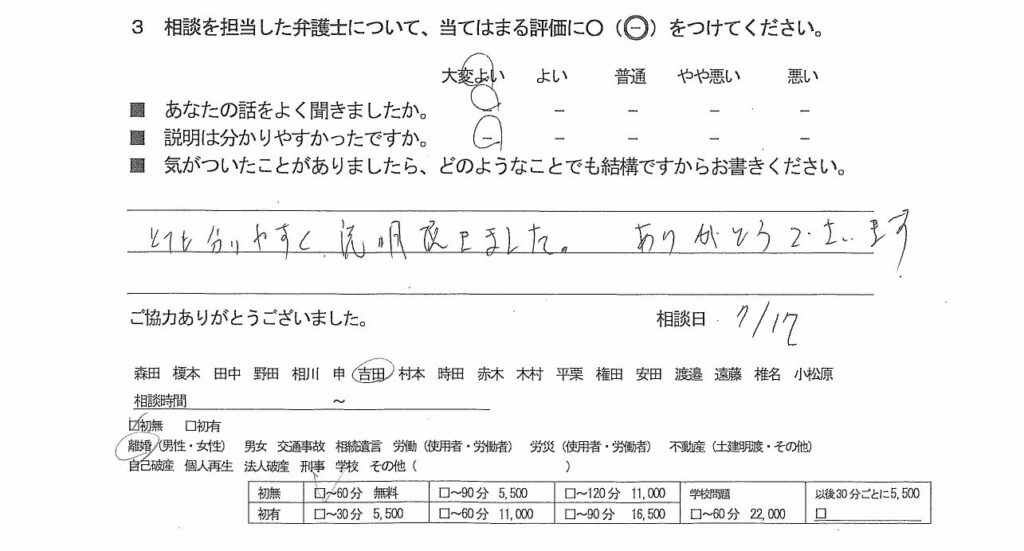 3 相談を担当した弁護士について、当てはまる評価に○（㊀）をつけてください。
大変よい よい 普通 やや悪い 悪い
■ あなたの話をよく聞きましたか。 － － － － －
■ 説明は分かりやすかったですか。 － － － － －
■ 気がついたことがありましたら、どのようなことでも結構ですからお書きください。
とても分りやすく説明 ました。 ありがとうございます
ご協力ありがとうございました。 相談日 7/17
森田 榎本 田中 野田 相川 申 吉田 村本 時田 赤木 木村 平栗 権田 安田 渡邉 遠藤 椎名 小松原
相談時間 ～
□初無 □初有
離婚（男性・女性） 男女 交通事故 相続遺言 労働（使用者・労働者） 労災（使用者・労働者） 不動産（土建明渡・その他）
自己破産 個人再生 法人破産 刑事 学校 その他（ ）
初無 □～60分 無料 □～90分 5,500 □～120分 11,000 学校問題 以後30分ごとに5,500
初有 □～30分 5,500 □～60分 11,000 □～90分 16,500 □～60分 22,000 □